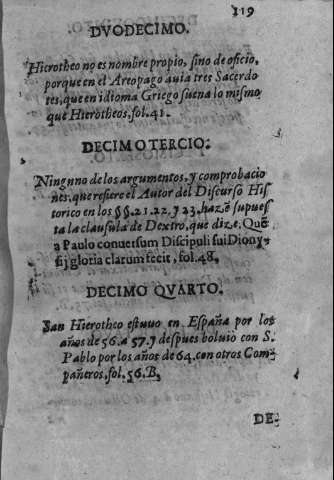 119
DVODECIMO.
Hierotheo no es nombre propio, sino de oficio,
porque en el Areopago auia tres Sacerdo
tes, que en idioma Griego suena lo mismo
que Hierotheos, fol. 41.
DECIMOTERCIO.
Ningnno de los argumentos, y comprobacio
nes, que refiere el Autor del Discurso His
torico en los §§. 21. 22. y 23. hazẽ supues
ta la clausula de Dextro, que dize, Quẽ
a Paulo conuersum Discipuli sui Diony
sij gloria clarum fecit, fol. 48.
DECIMO QVARTO.
San Hierotheo estuuo en España por los
años de 56. a 57. y despues boluio con S.
Pablo por los años de 64. con otros Com
pañeros. fol. 56. B.
DE-